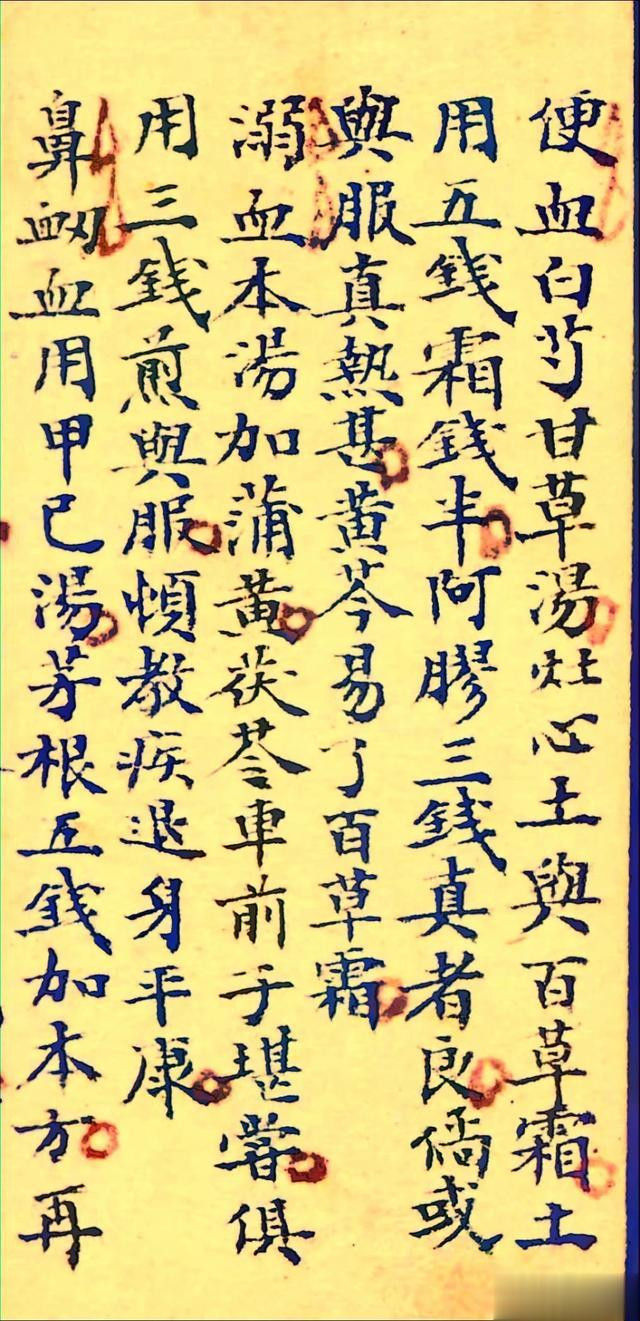 便血白芍甘草湯灶心土與百草霜土
用五錢霜錢半阿膠三錢真者良倘或
與服真熱甚黄芩易了百草霜
溺血本湯加蒲黄茯苓車前子堪嘗俱
用三錢煎與服頓教疾退身平康
鼻衂血用甲己湯芽根五錢加本方再